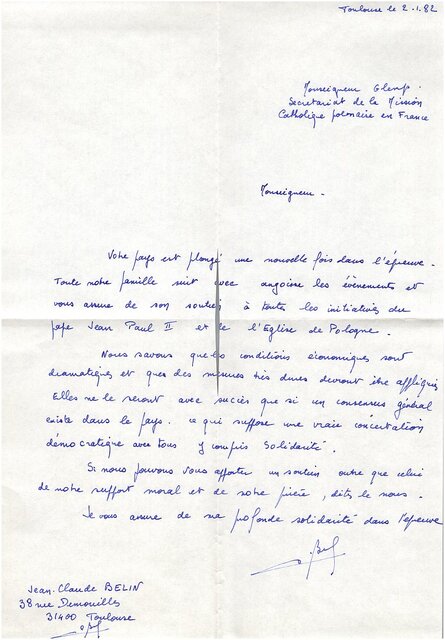 Toulouse le 2.1.82
Monseigneur Glemp.
Secrétariat de la Mission
Catholique polonaise en France
Monseigneur.
Votre pays est plongé une nouvelle fois dans l'épreuve.
Toute notre famille suit avec angoisse les évènements et
vous assure de son soutien à toutes les initiatives du
pape Jean Paul II et de l'Eglise de Pologne.
Nous savons que les conditions économiques sont
dramatiques et que des mesures très dures devront être appliquées
Elles ne le seront avec succès que si un consensus général
existe dans le pays. ce qui suppose une vraie concertation
démocratique avec tous y compris Solidarité.
Si nous pouvons vous apporter un soutien autre que celui
de notre support moral et de notre prière, dites le nous.
Je vous assure de ma profonde solidarité dans l'épreuve
Jean-Claude BELIN
38 rue Demouilles
31400 Toulouse